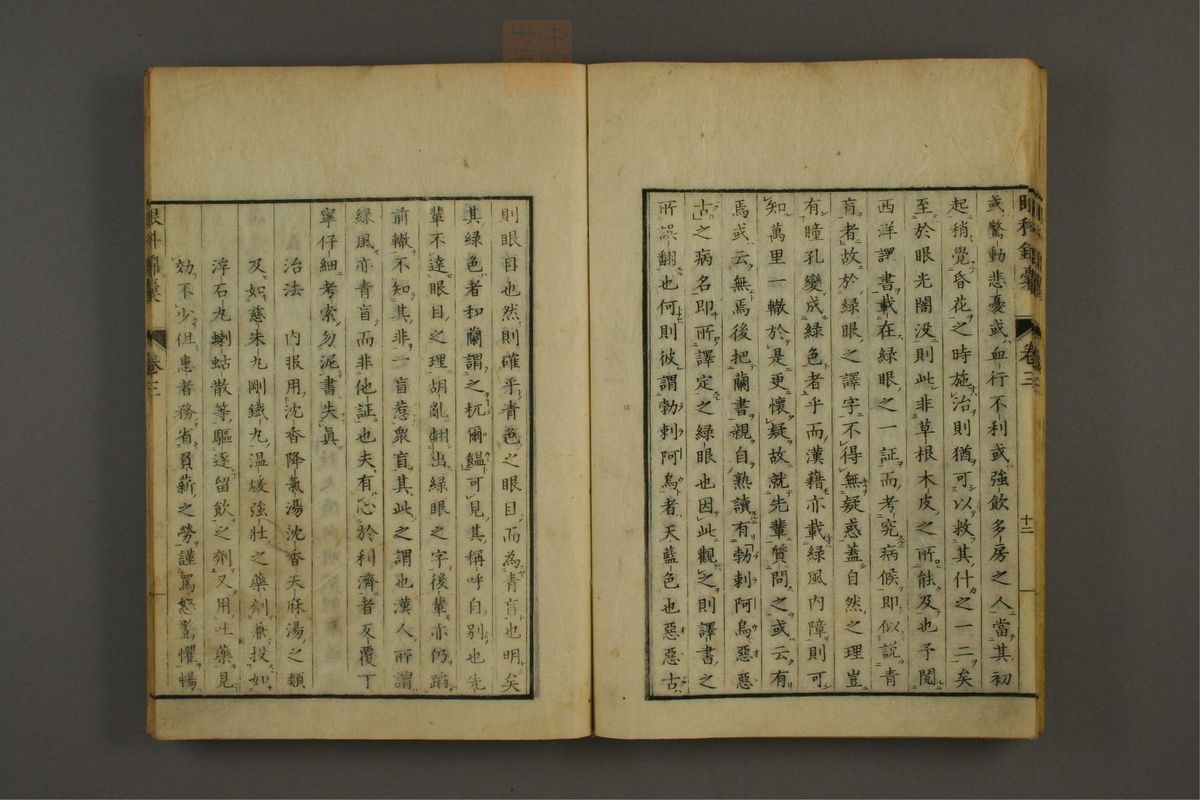 眼科錦囊 卷三 十二
或驚動悲憂或血行不利或強飲多房之人當其初
起稍覺昏花之時施治則猶可以救其什之一二矣
至於眼光闇沒則此非草根木皮之所能及也予閱
西洋譯書載在綠眼之一証而考究病候即似說青
盲者故於綠眼之譯字不得無疑惑蓋自然之理豈
有瞳孔變成綠色者乎而漢藉亦載綠風內障則可
知萬里一轍於是更懷疑故就先輩質問之或云有
焉或云無焉後把蘭書親自熟讀有勃剌阿烏惡惡
古之病名即所譯定之綠眼也因此觀之則譯書之
所誤翻也何則彼謂勃剌阿烏者天藍色也惡惡古
則眼目也然則確乎青色之眼目而為青盲也明矣
其綠色者和蘭謂之抏爾鰛可見其稱呼自別也先
輩不達眼目之理胡亂翻出綠眼之字後輩亦仍蹈
前轍不知其非一盲惹衆盲其此之謂也漢人所謂
綠風亦青盲而非他証也夫有心於利濟者反覆丁
寧仔細考索勿泥書失眞
治法 內服用沈香降氣湯沈香天麻湯之類
及如慈朱丸剛鐵丸温煖強壯之藥劑兼投如
浮石丸蝲蛄散等驅逐留飲之劑又用吐藥見
効不少但患者務省負薪之勞謹罵怒驚懼暢
眼科錦囊 卷三